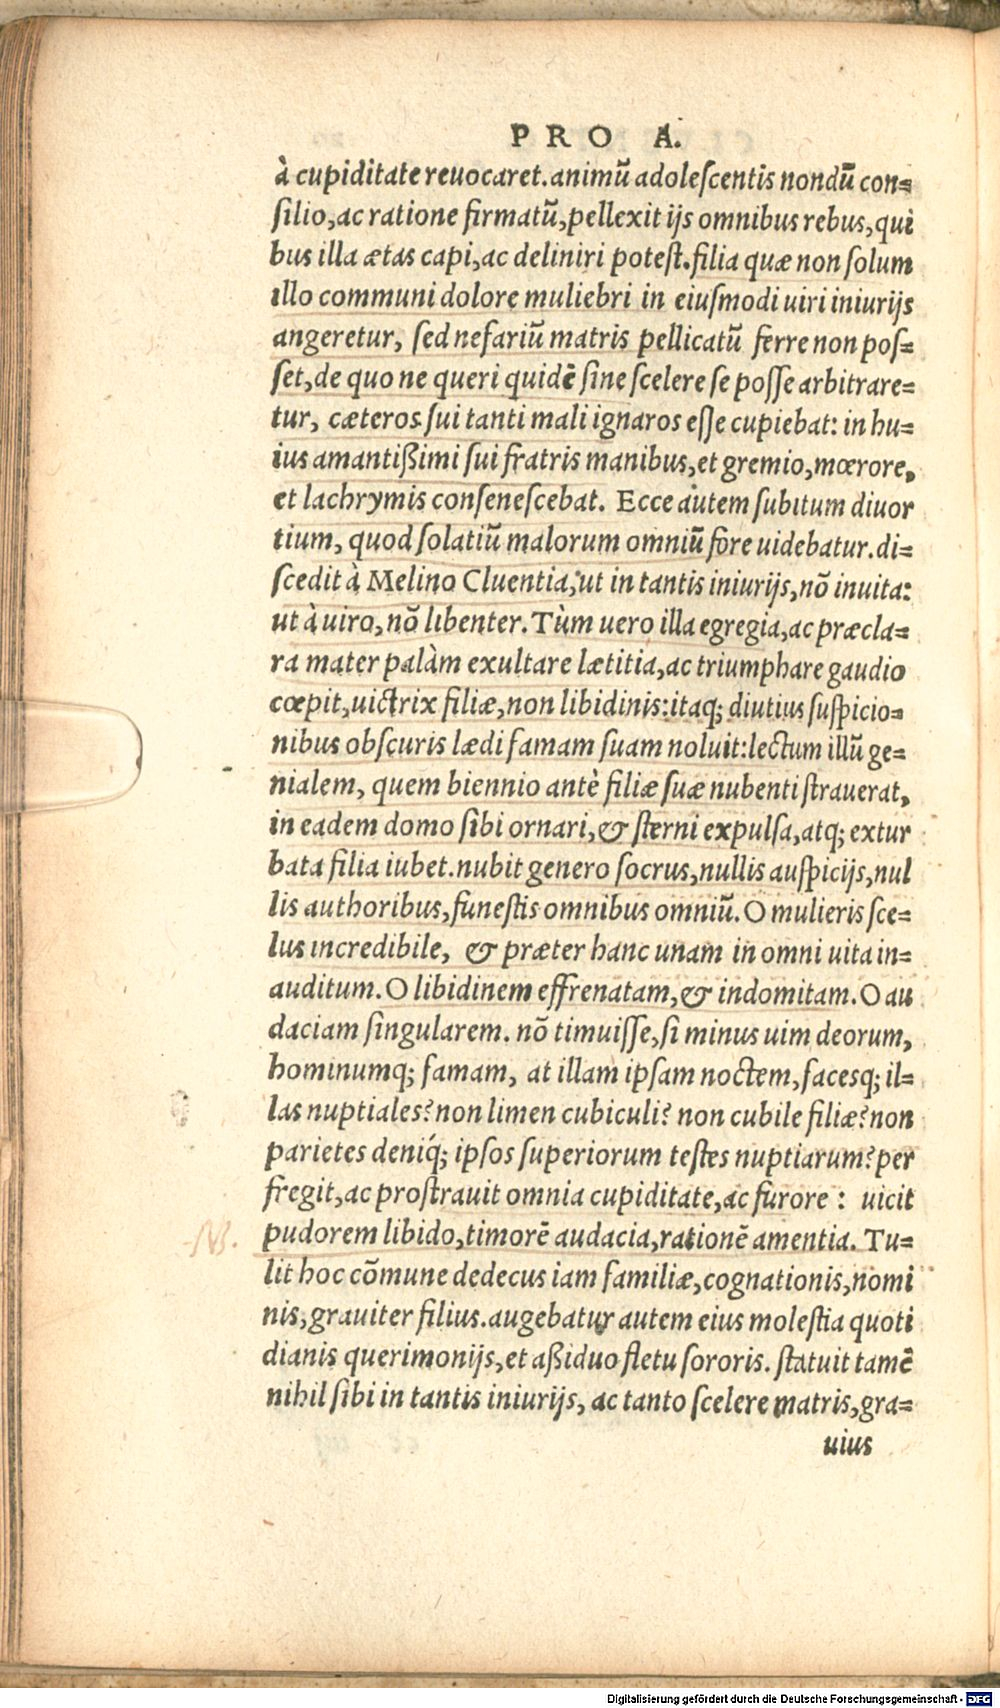 PRO A.
à cupiditate reuocaret. animũ adolescentis nondũ con=
silio, ac ratione firmatũ, pellexit ijs omnibus rebus, qui
bus illa ætas capi, ac deliniri potest. filia quæ non solum
illo communi dolore muliebri in eiusmodi uiri iniurijs
angeretur, sed nefariũ matris pellicatũ ferre non pos=
set, de quo ne queri quidẽ sine scelere se posse arbitrare=
tur, cæteros sui tanti mali ignaros esse cupiebat: in hu=
ius amantißimi sui fratris manibus, et gremio, mœrore,
et lachrymis consenescebat. Ecce autem subitum diuor
tium, quod solatiũ malorum omniũ fore uidebatur. di=
scedit à Melino Cluentia, ut in tantis iniurijs, nõ inuita:
ut à uiro, nõ libenter. Tùm uero illa egregia, ac præcla=
ra mater palàm exultare lætitia, ac triumphare gaudio
cœpit, uictrix filiæ, non libidinis: itaq; diutius suspicio=
nibus obscuris lædi famam suam noluit: lectum illũ ge=
nialem, quem biennio antè filiæ suæ nubenti strauerat,
in eadem domo sibi ornari, & sterni expulsa, atq; extur
bata filia iubet. nubit genero socrus, nullis auspicijs, nul
lis authoribus, funestis omnibus omniũ. O mulieris sce=
lus incredibile, & præter hanc unam in omni uita in=
auditum. O libidinem effrenatam, & indomitam. O au
daciam singularem. nõ timuisse, si minus uim deorum,
hominumq; famam, at illam ipsam noctem, facesq; il=
las nuptiales? non limen cubiculi? non cubile filiæ? non
parietes deniq́; ipsos superiorum testes nuptiarum? per
fregit, ac prostrauit omnia cupiditate, ac furore : uicit
pudorem libido, timorẽ audacia, rationẽ amentia. Tu=
lit hoc cõmune dedecus iam familiæ, cognationis, nomi
nis, grauiter filius. augebatur autem eius molestia quoti
dianis querimonijs, et aßiduo fletu sororis. statuit tamẽ
nihil sibi in tantis iniurijs, ac tanto scelere matris, gra=
uius
Digitalisierung gefördert durch die Deutsche Forschungsgemeinschaft - DFG